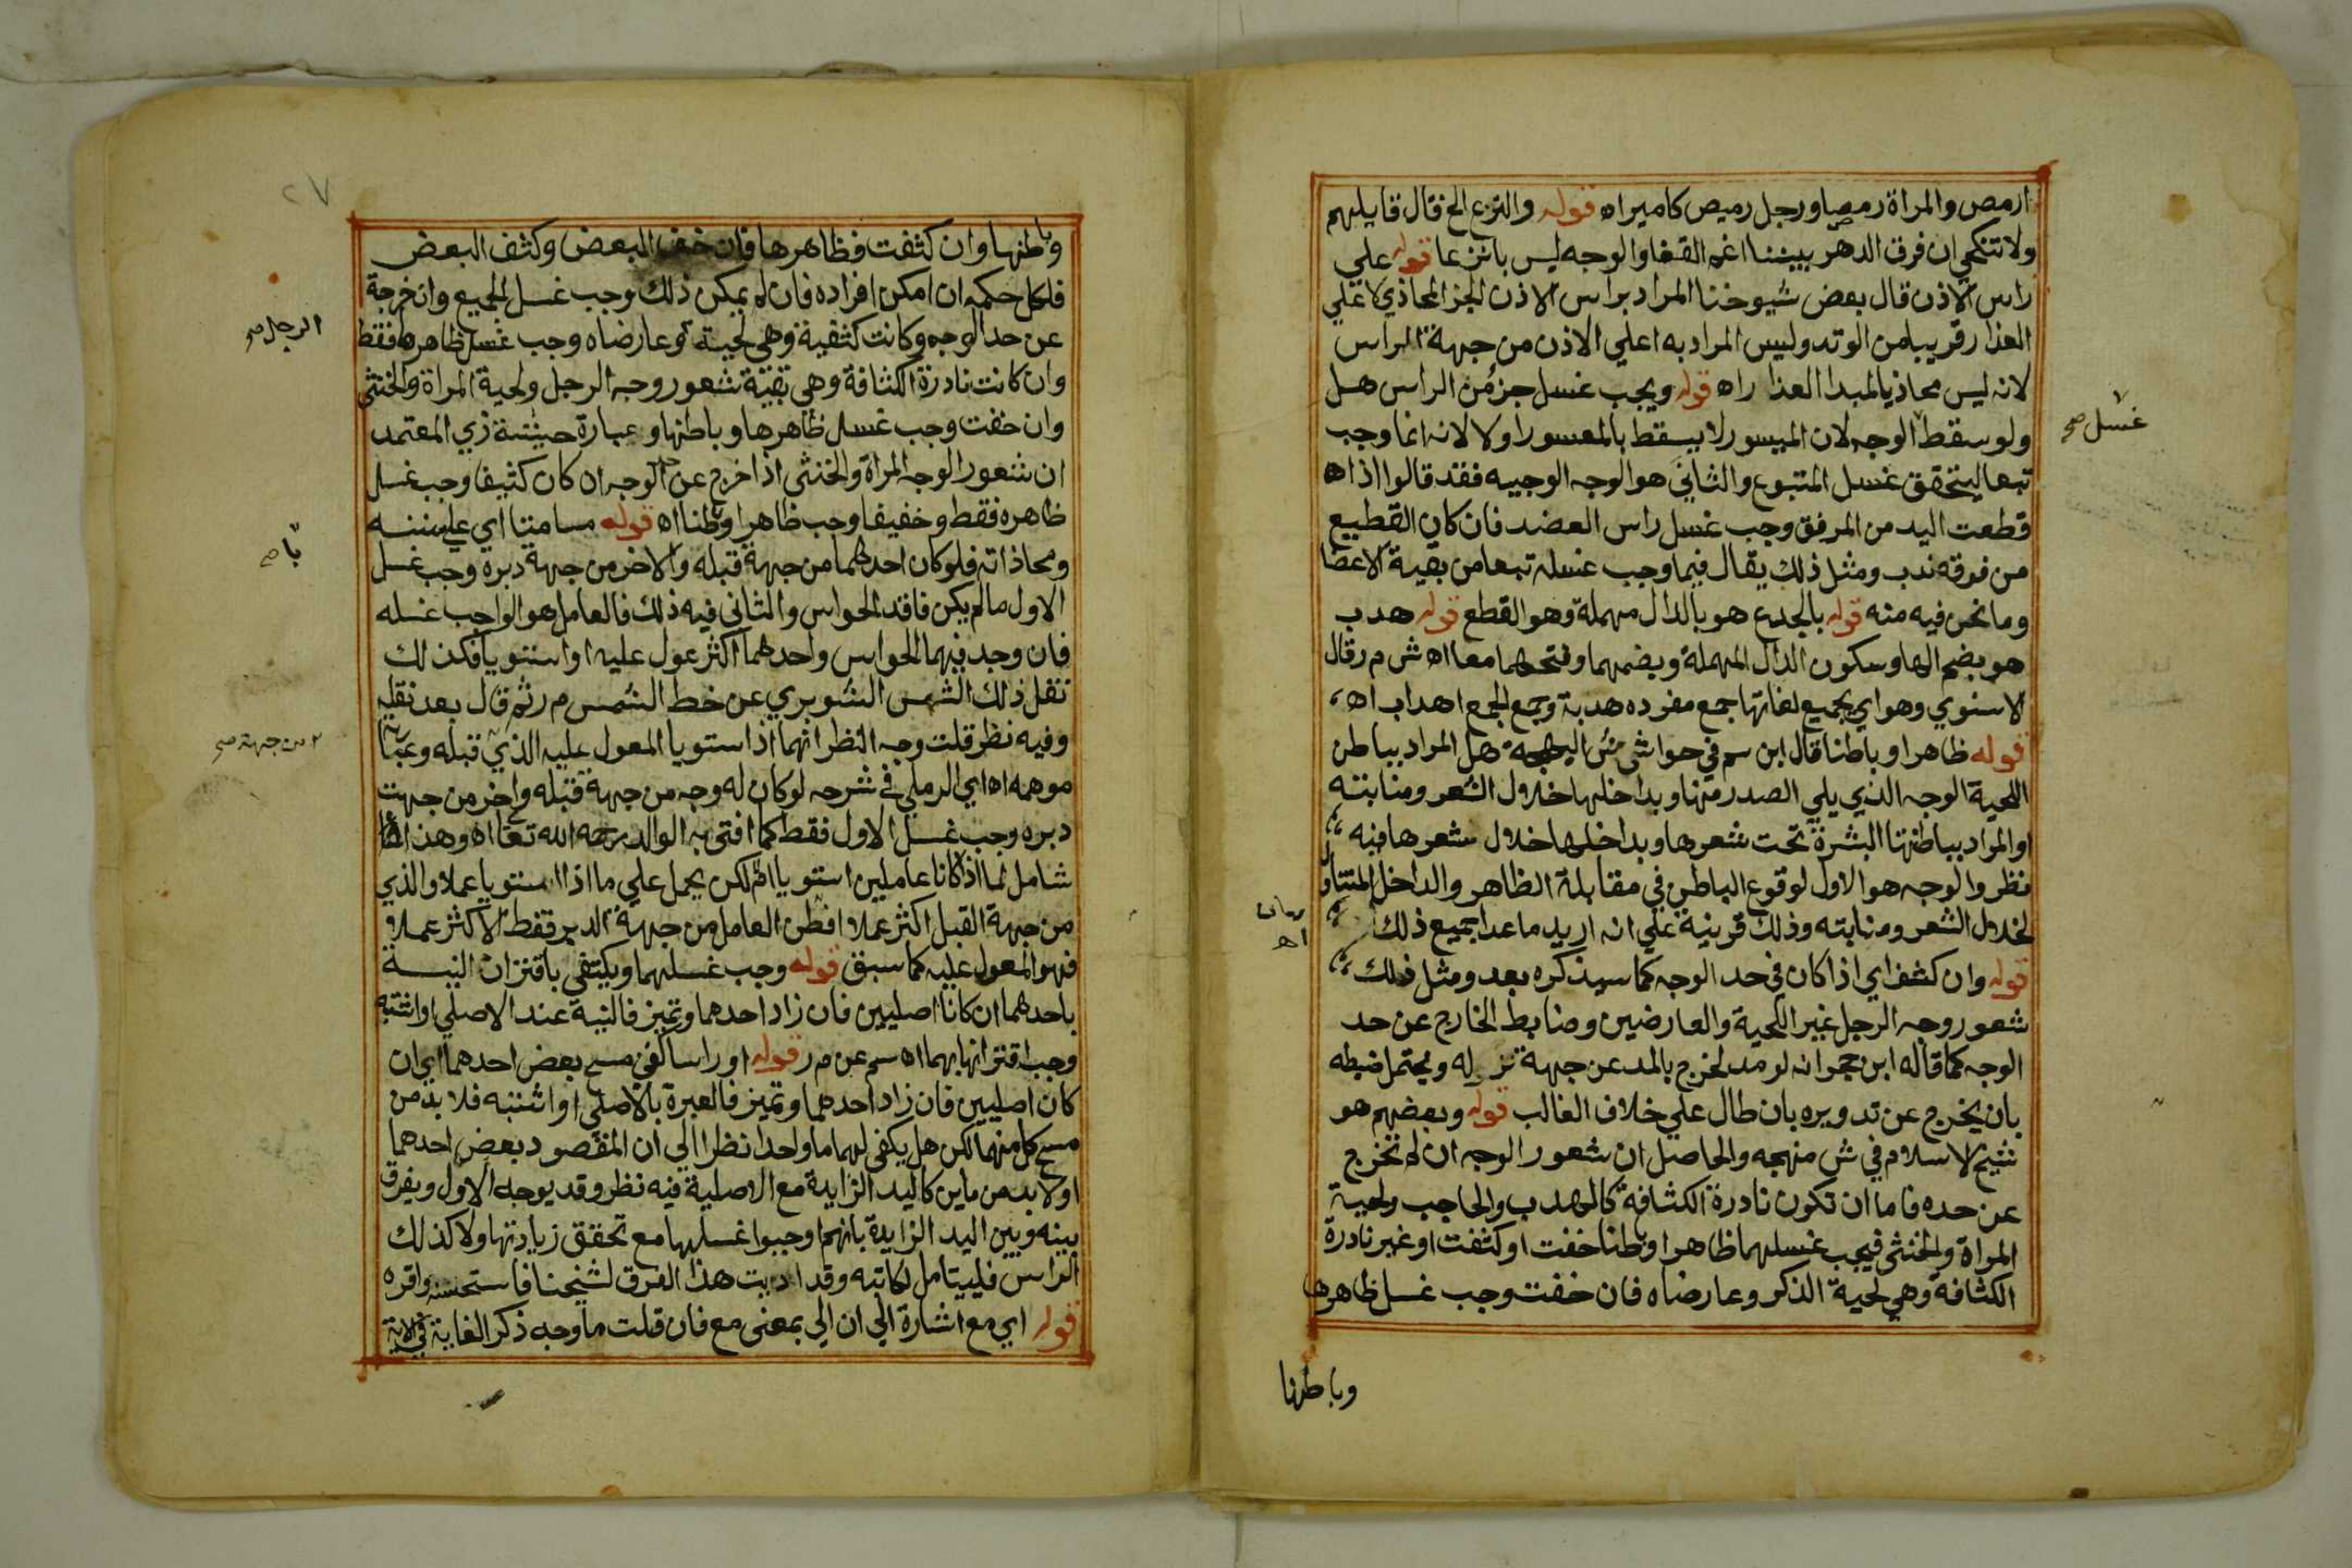 ارمص والمراة رمصا ورجل رميص كاميراه قوله والنزع الخ قال قايلهم
ولا تنكحي ان فرق الدهر بيننا اغم القفا والوجه ليس بانزعا قوله علي
راس الاذن قال بعض شيوخنا المراد براس الاذن الجز المحاذي لاعلي
العذار قريبا من الوتد وليس المراد به اعلي الاذن من جهة الراس
لانه ليس محاذيا لمبدا العذار اه قوله ويجب غسل جزء من الراس هل
ولو سقط الوجه لان الميسور لا يسقط بالمعسور اولا لانه انما وجب
غسل صح
تبعا ليتحقق غسل المتبوع والثاني هو الوجه الوجيه فقد قالوا اذا
قطعت اليد من المرفق وجب غسل راس العضد فان كان القطيع
من فوقه ندب ومثل ذلك يقال فيما وجب غسله تبعا من بقية الاعضا
وما نحن فيه منه قوله بالجدع هو بالدال مهملة وهو القطع قوله هدب
هو بضم الها وسكون الدال المهملة وبضمهما وفتحهما معا اه ش م ر قال
الاسنوي وهو اي بجميع لغاتها جمع مفرده هدبة وجمع الجمع اهداب اه
قوله ظاهرا وباطنا قال ابن سم في حواشي البهجة هل المراد بباطن
اللحية الوجه الذي يلي الصدر منها وبداخلها خلال الشعر ومنابته
او المراد بباطنها البشرة تحت شعرها وبداخلها خلال شعرها فيه
نظر والوجه هو الاول لوقوع الباطن في مقابلة الظاهر والداخل المتناول
لخلال الشعر ومنابته وذلك قرينة علي انه اريد ماعدا جميع ذلك
اه
قوله وان كثف اي اذا كان في حد الوجه كما سيذكره بعد ومثل ذلك
شعور وجه الرجل غير اللحية والعارضين وضابط الخارج عن حد
الوجه كما قاله ابن حجر انه لو مد لخرج بالمد عن جهة نزوله ويحتمل ضبطه
بان يخرج عن تدويره بان طال علي خلاف الغالب قوله وبعضهم هو
شيخ الاسلام في ش منهجه والحاصل ان شعور الوجه ان لم تخرج
عن حده فاما ان تكون نادرة الكثافة كالهدب والحاجب ولحية
المراة والخنثي فيجب غسلهما ظاهرا وباطنا خفت او كثفت او غير نادرة
الكثافة وهي لحية الذكر وعارضاه فان خفت وجب غسل ظاهرها
وباطنها
٢٧
وباطنها وان كثفت فظاهرها فان خف البعض وكثف البعض
فلكل حكمه ان امكن افراده فان لم يمكن ذلك وجب غسل الجميع وان خرجة
عن حد الوجه وكانت كثيفة وهي لحية وعارضاه وجب غسل ظاهرها فقط
الرجل صح
وان كانت نادرة الكثافة وهي بقية شعور وجه الرجل ولحية المراة والخنثي
وان خفت وجب غسل ظاهرها وباطنها وعبارة حيثية زي المعتمد
ان شعور الوجه المراة والخنثي اذا خرج عن حد الوجه ان كان كثيفا وجب غسل
ظاهره فقط وخفيفا وجب ظاهرا وباطنا اه قوله مسامتا اي علي سننه
با صح
ومحاذاته فلو كان احدهما من جهة قبله والاخر من جهة دبره وجب غسل
الاول مالم يكن فاقد الحواس والثاني فيه ذلك فالعامل هو الواجب غسله
فان وجد فيهما الحواس واحدهما اكثر عول عليه او استويا فكذلك
نقل ذلك الشمس الشوبري عن خط الشمس م ر ثم قال بعد نقله
وفيه نظر قلت وجه النظر انهما اذا استويا المعول عليه الذي قبله وعبارته
من جهة صح
موهمه اه اي الرملي في شرحه لو كان له وجه من جهة قبله واخر من جهت
دبره وجب غسل الاول فقط كما افتي به الوالد رحمه الله تعا اه وهذا
شامل لما اذا كانا عاملين استويا لكن يحمل علي ما اذا استويا عملا والذي
من جهة القبل اكثر عملا العامل من جهة الدبر فقط الاكثر عملا
فهو المعول عليه كما سبق قوله وجب غسلهما ويكتفي باقتران النية
باحدهما ان كانا اصليين فان زاد احدهما وتميز فالنية عند الاصلي او اشتبه
وجب اقترانها بهما اه سم عن م ر قوله او راسا كفي مسح بعض احدهما اي ان
كان اصليين فان زاد احدهما وتميز فالعبرة بالاصلي او اشتبه فلا بد من
مسح كل منهما لكن هل يكفي لهما ما واحد نظرا الي ان المقصود بعض احدهما
اولا بد من ماين كاليد الزايدة مع الاصلية فيه نظر وقد يوجه الاول ويفرق
بينه وبين اليد الزايدة بانهم اوجبوا غسلها مع تحقق زيادتها ولا كذلك
الراس فليتامل لكاتبه وقد ابديت هذا الفرق لشيخنا فاستحسنه واقره
قوله اي مع اشارة الي ان الي بمعني مع فان قلت ما وجه ذكر الغاية في الاية